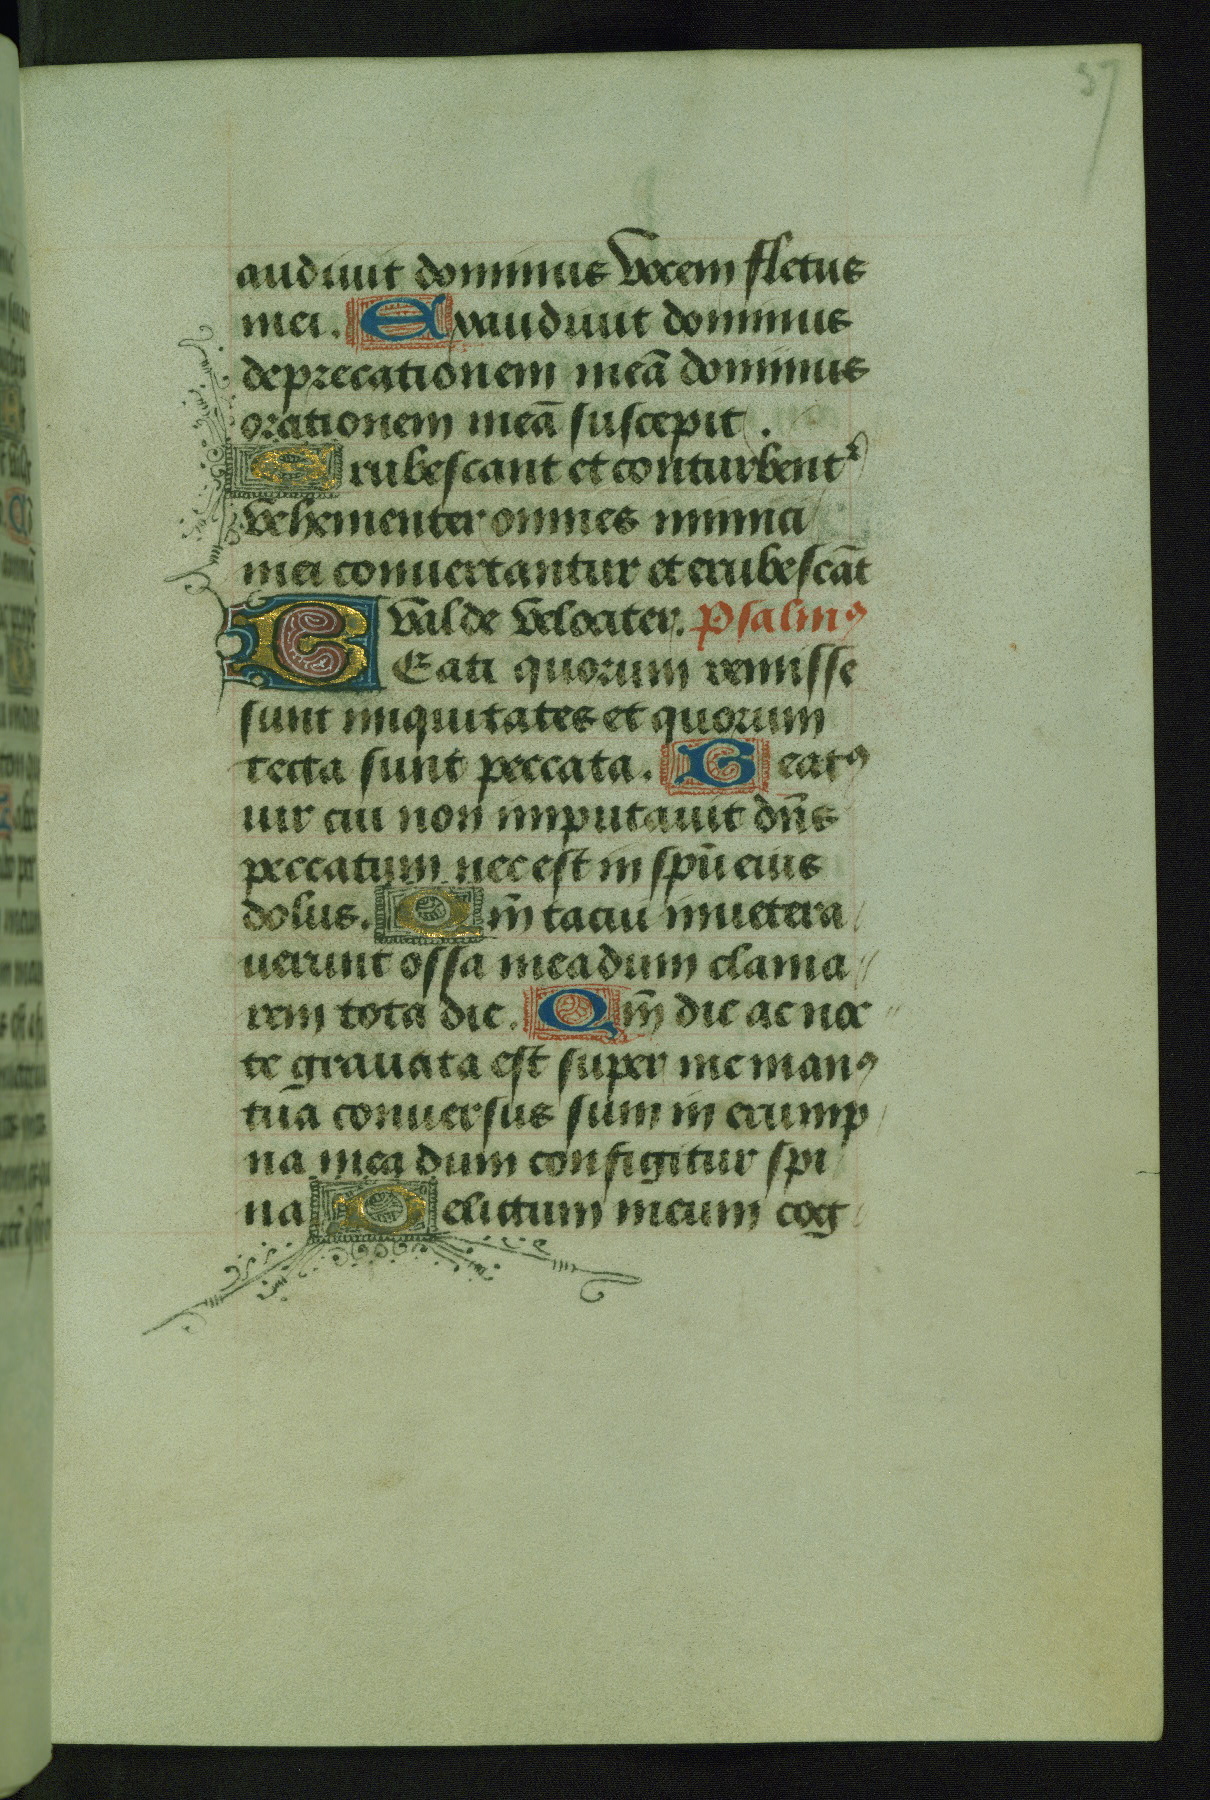 37
audiuit dominus vocem fletus
mei. Exaudiuit dominus
deprecationem meā dominus
orationem meā suscepit.
Erubescant et conturbentr
vehementer omnes inimici
mei conuertantur et erubescāt
valde velociter. Psalmꝰ
BEati quorum remisse
sunt iniquitates et quorum
tecta sunt peccata. Beatꝰ
uir cui non imputauit dn̄s
peccatum nec est in spū eius
dolus. Qm̄ tacui inuetera
uerunt ossa mea dum clama
rem tota die. Qm̄ die ac noc
te grauata est super me manꝰ
tua conuersus sum in erump
na mea dum configitur spi
na Delictum meum cog